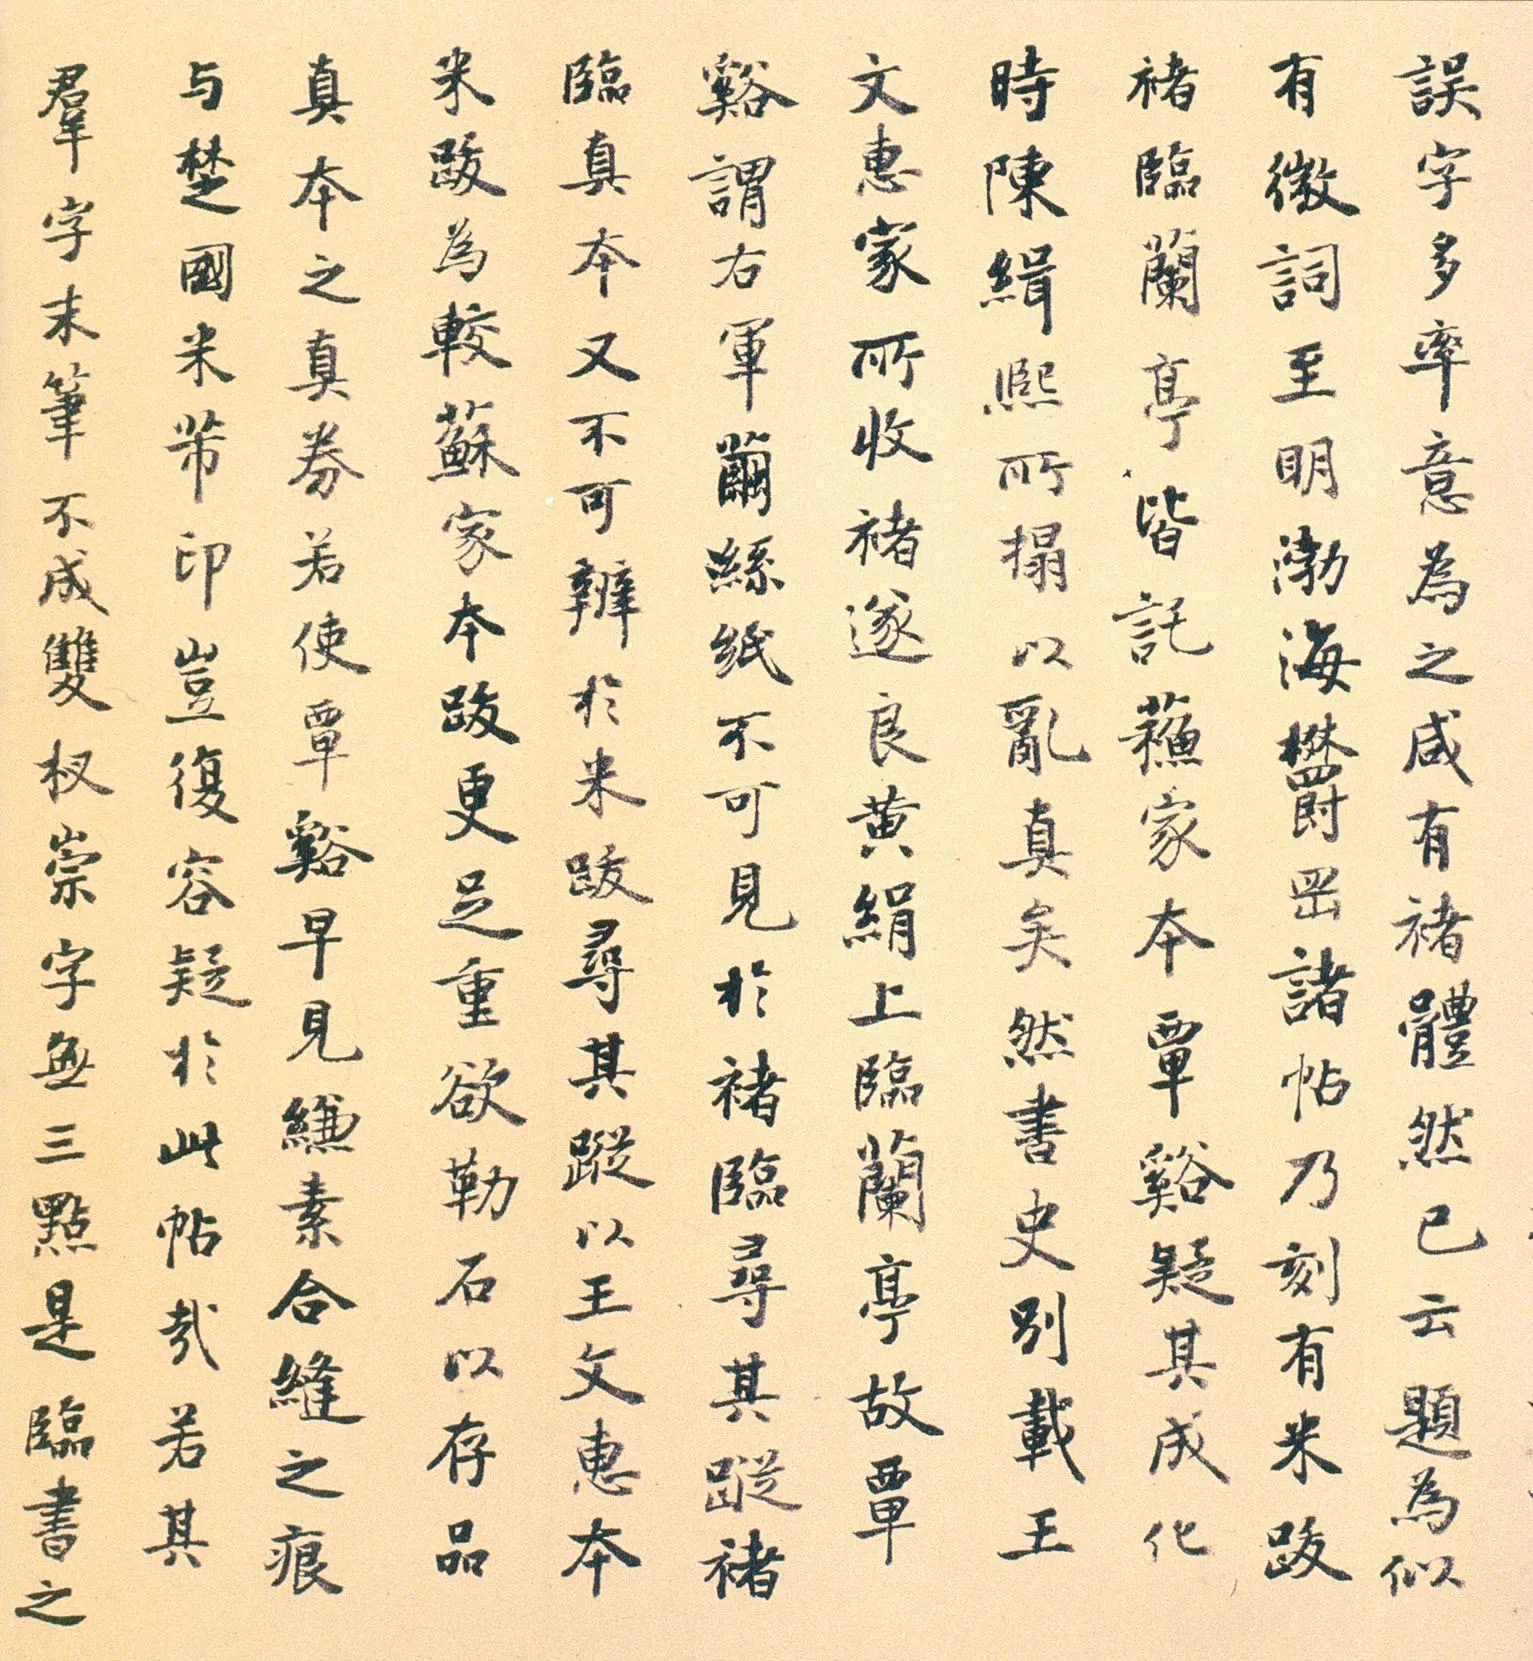 誤字多率意為之咸有褚體然已云題為似
有微詞至明渤海鬱岡諸帖乃刻有米跋
褚臨蘭亭皆託蘓家本覃谿疑其成化
時陳緝熙所搨以亂真矣然書史別載王
文惠家所收褚遂良黄絹上臨蘭亭故覃
谿謂右軍繭絲紙不可見於褚臨尋其蹤褚
臨真本又不可辨於米跋尋其蹤以王文惠本
米跋為較蘇家本跋更足重欲勒石以存品
真本之真券若使覃谿早見縑素合縫之痕
与楚國米芾印豈復容疑於此帖哉若其
羣字末筆不成雙杈崇字無三點是臨書之